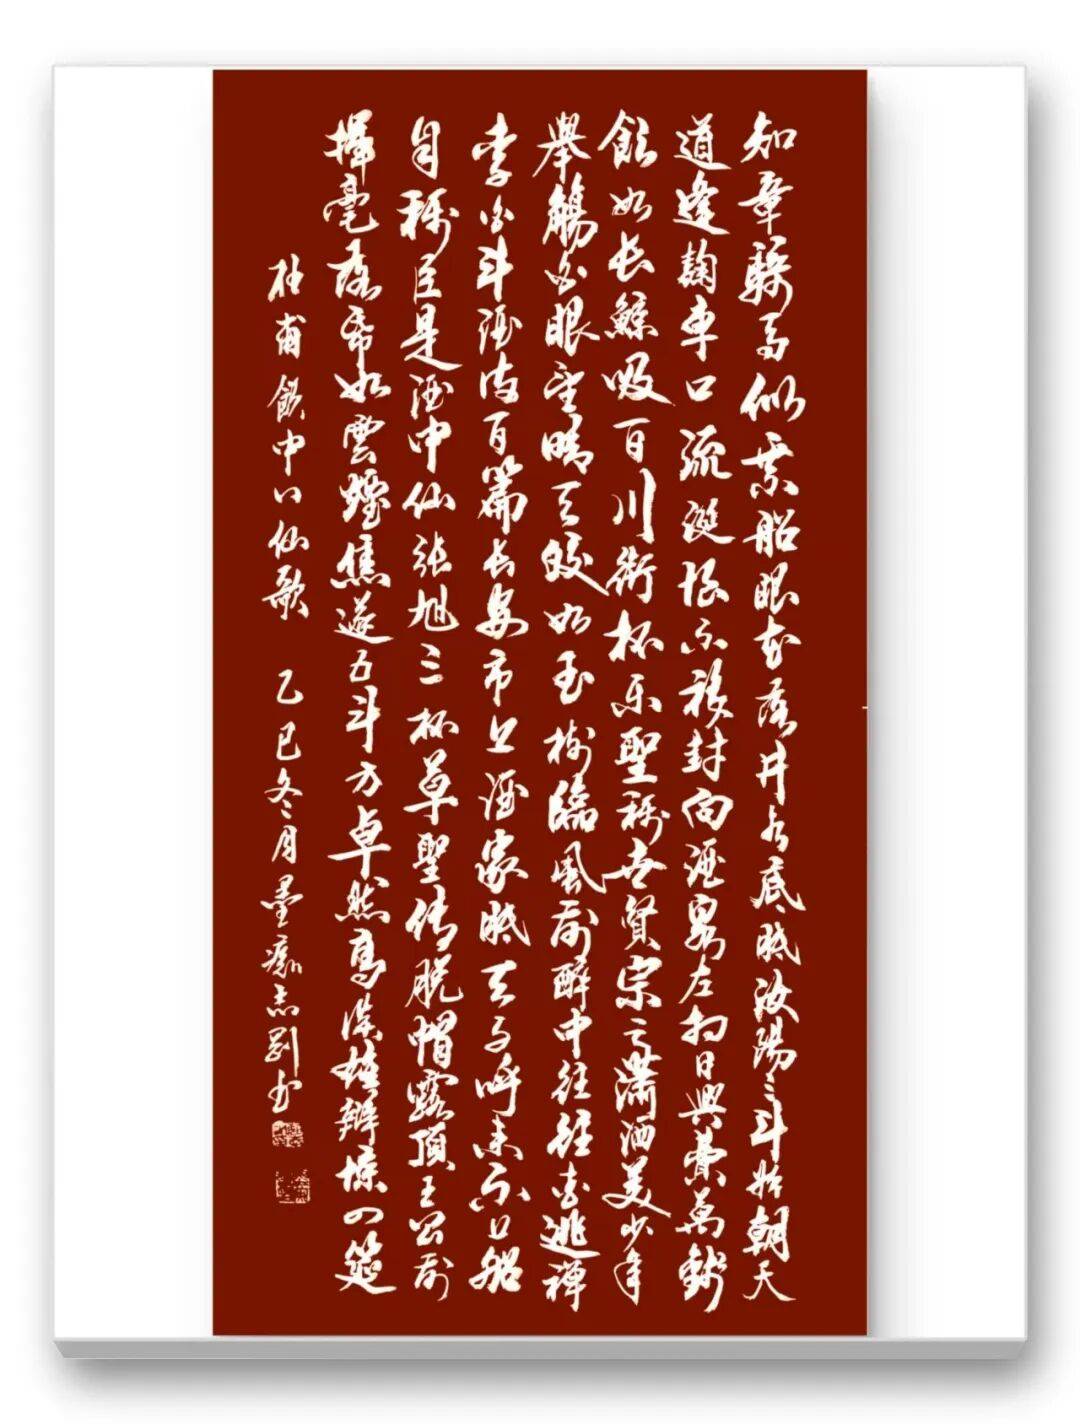 知章騎马似乘船眼花落井水底眠汝陽三斗始朝天
道逢麹車口流涎恨不移封向酒泉左相日興費萬錢
飲如长鯨吸百川銜杯乐聖稱世賢宗之瀟洒美少年
舉觴白眼望晴天皎如玉樹臨風前醉中往往爱逃禪
李白斗酒诗百篇长安市上酒家眠天子呼来不上船
自稱臣是酒中仙张旭三杯草聖传脱帽露頂王公前
揮毫落帋如雲煙焦遂五斗方卓然高谈雄辯惊四筵
杜甫飲中八仙歌 乙巳冬月墨痴志剛书